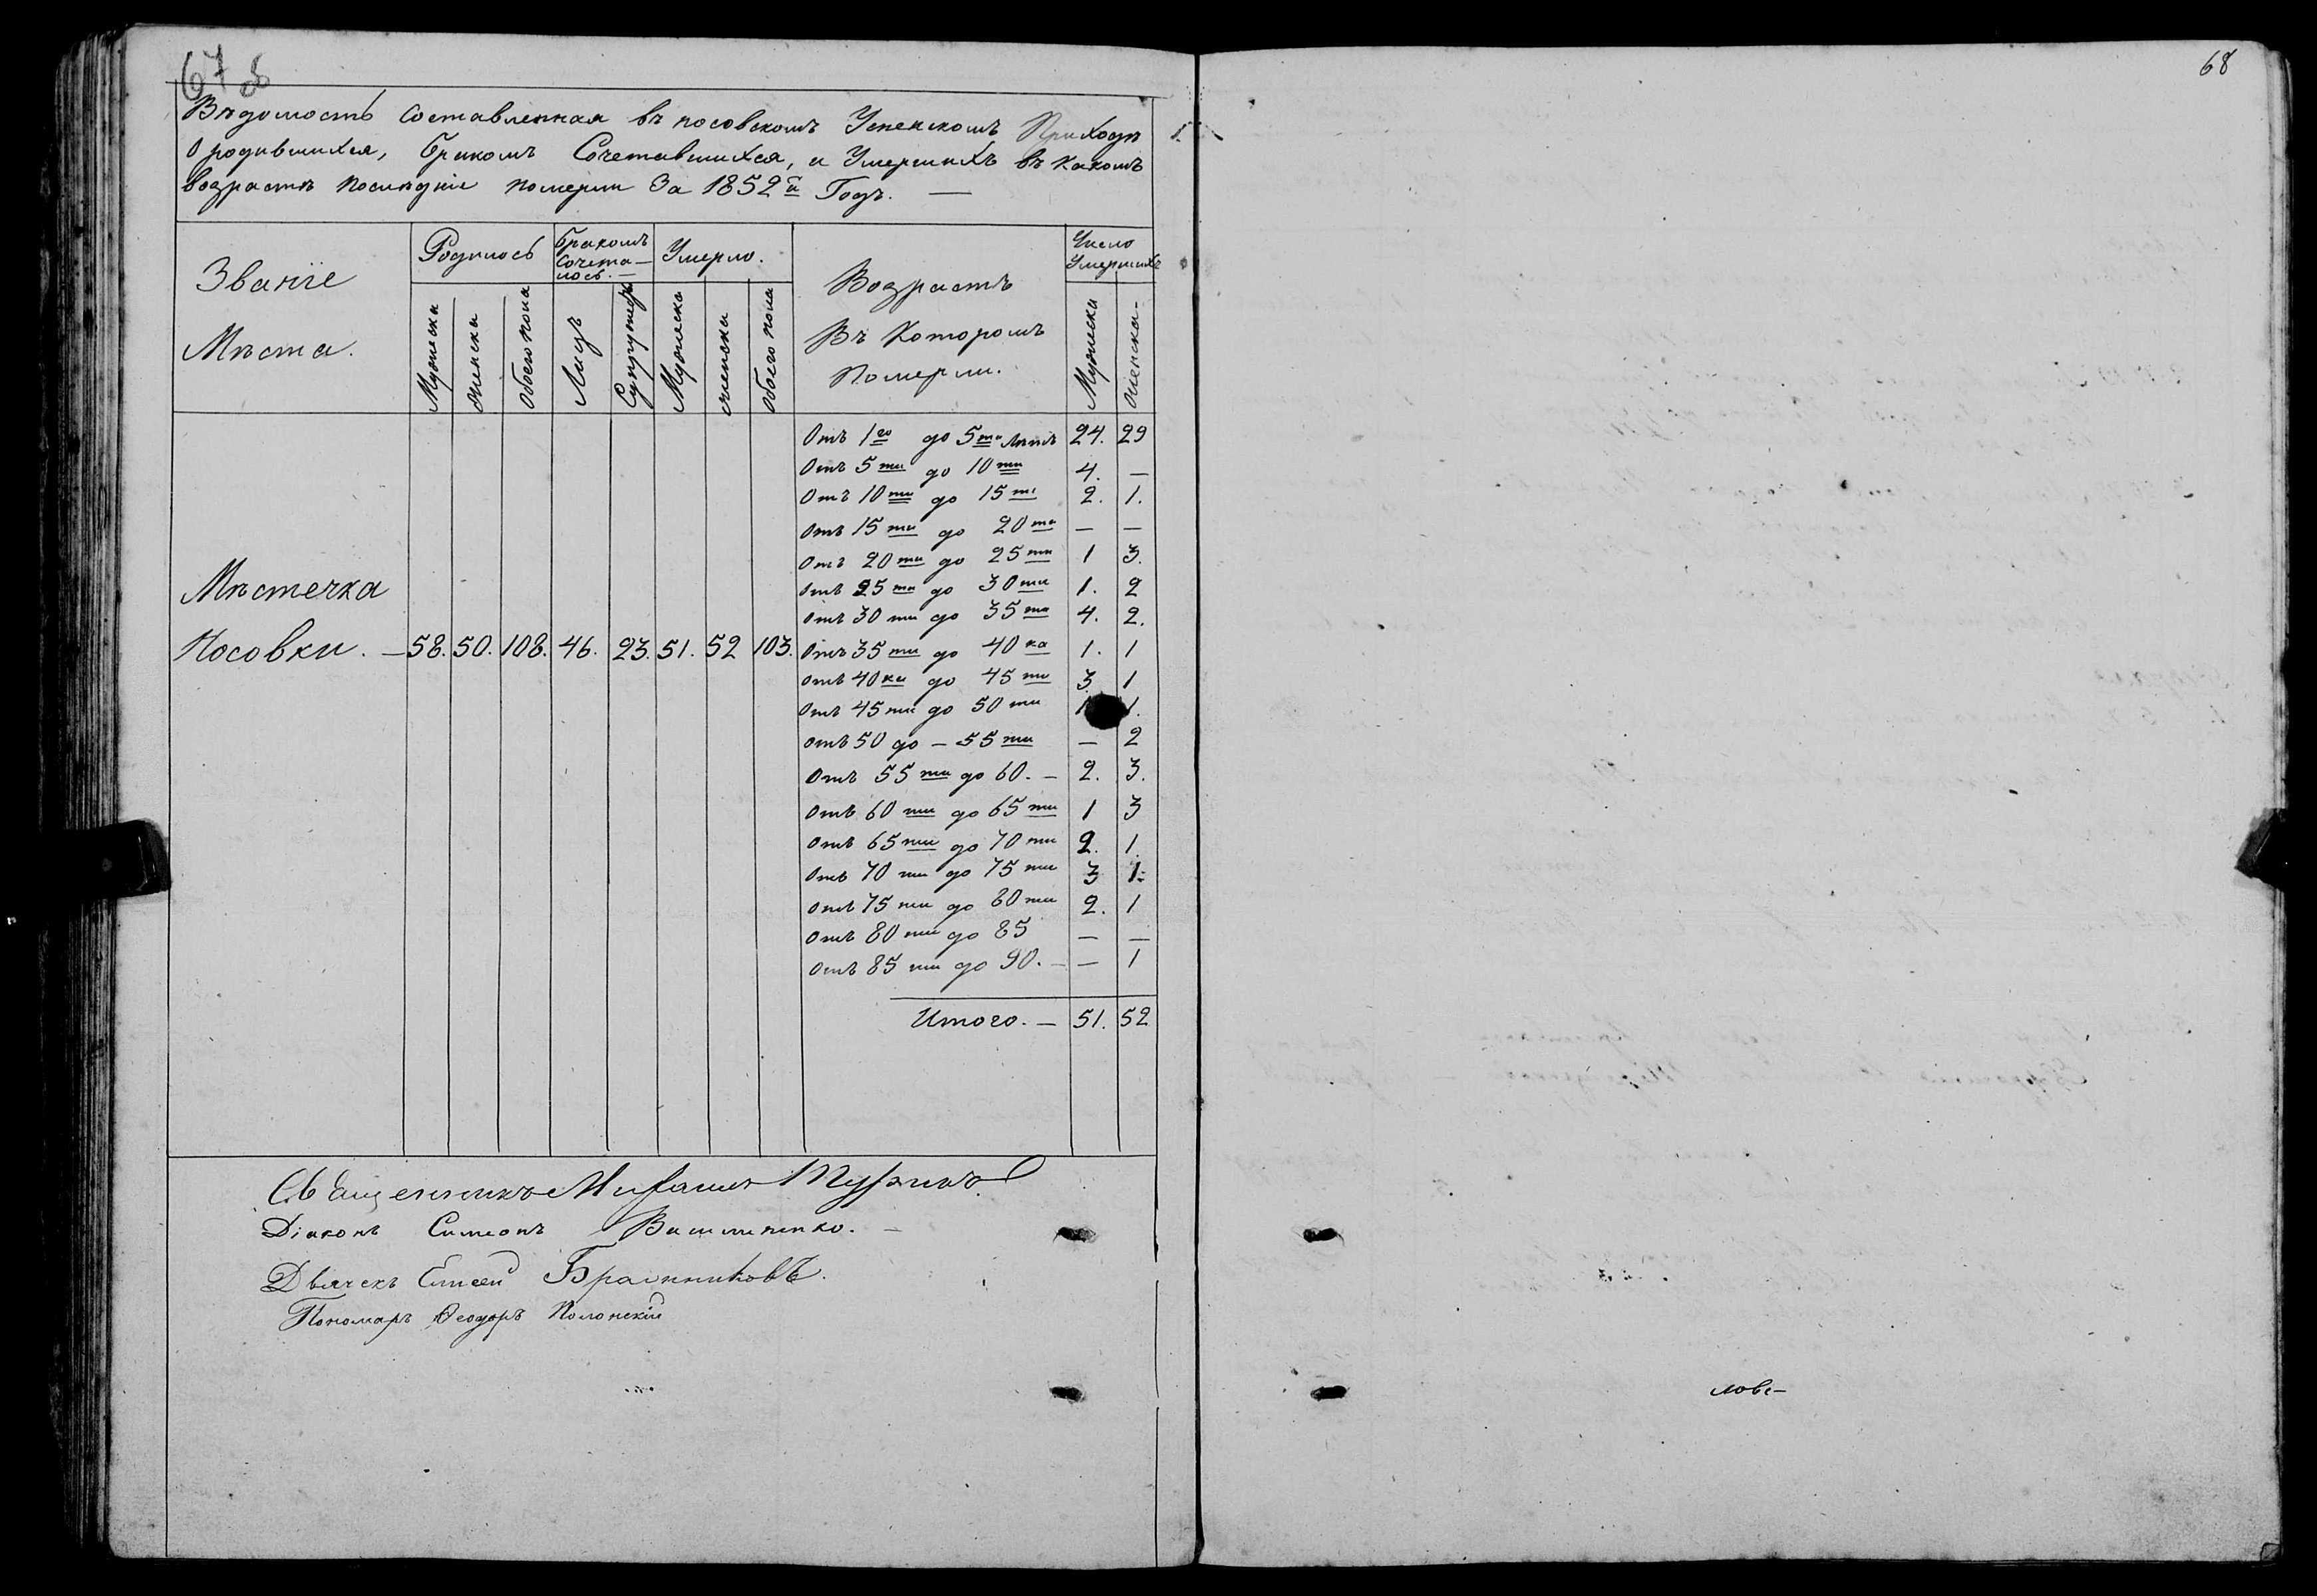 67 об
68
Вѣдомость составленная въ носовскомъ Успенскомъ Приходѣ
О родившихся, бракомъ Сочетавшихся, и Умершихъ въ какомъ
возрастѣ послѣдніе померли За 1852й Годъ. —
Званіе Мѣста.
Родилось
бракомъ сочета—лось. —
Умерло.
Возрастъ Въ Которомъ Померли.
Число Умершихъ
Мужеска
женска
обоего пола
Лицъ
Супружествъ
Мужеска
женска
обоего пола
Мужеска
женска
Отъ 1го до 5ти лѣтъ 24. 29
Отъ 5ти до 10ти 4. —
Отъ 10ти до 15ти 2. 1.
Отъ 15ти до 20ти — —
Отъ 20ти до 25ти 1 3.
Отъ 25ти до 30ти 1. 2
Отъ 30ти до 35ти 4. 2.
Мѣстечка
Носовки. — 58. 50. 108. 46. 23. 51. 52 103. Отъ 35ти до 40ка 1. 1
Отъ 40ка до 45ти 3 1
Отъ 45ти до 50ти 1 1.
Отъ 50 до — 55ти — 2
Отъ 55ти до 60. — 2. 3.
Отъ 60ти до 65ти 1 3
Отъ 65ти до 70ти 2. 1.
Отъ 70ти до 75ти 3 1.
Отъ 75ти до 80ти 2. 1
Отъ 80ти до 85 — —
Отъ 85ти до 90. — — 1
Итого. — 51. 52
Священникъ
Діаконъ Симеонъ Василиненко. —
Дьячекъ Елисей Бражниковъ.
Пономарь Ѳеодоръ Полонскій